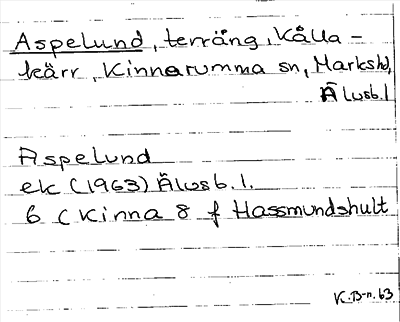 Aspelund, terräng, Källa-
kärr, Kinnarumma sn, Marks hd,
Älvsb. l
Aspelund
ek (1963) Älvsb. l.
6 c Kinna 8 f Hassmundshult
K. B-n. 63